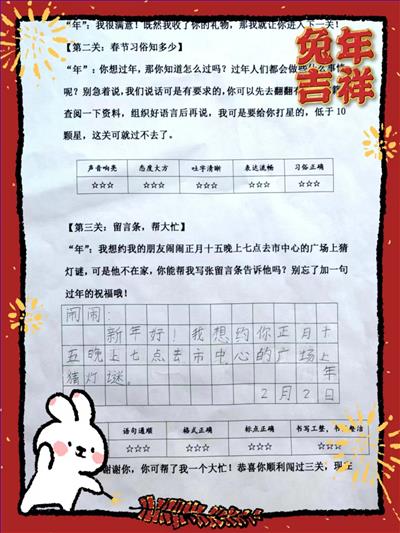 “年”：我很满意！既然我收了你的礼物，那我就让你进入下一关！
【第二关：春节习俗知多少】
兔年
吉祥
“年”：你想过年，那你知道怎么过吗？过年人们都会做些什么事情
呢？别急着说，我们说话可是有要求的，你可以先去翻翻
查阅一下资料，组织好语言后再说，我可是要给你打星的，低于 10
颗星，这关可就过不去了。
声音响亮 态度大方 吐字清晰 表达流畅 习俗正确
☆☆☆ ☆☆☆ ☆☆☆ ☆☆☆ ☆☆☆
【第三关：留言条，帮大忙】
“年”：我想约我的朋友闹闹正月十五晚上七点去市中心的广场上猜
灯谜，可是他不在家，你能帮我写张留言条告诉他吗？别忘了加一句
过年的祝福哦！
闹闹：
新年好！我想约你正月十
五晚上七点去市中心的广场上
猜灯谜。 年
2月2日
语句通顺 格式正确 标点正确 书写工整，书 整洁
☆☆☆ ☆☆☆ ☆☆☆ ☆☆☆
谢谢你，你可帮了我一个大忙！恭喜你顺利闯过三关，现在